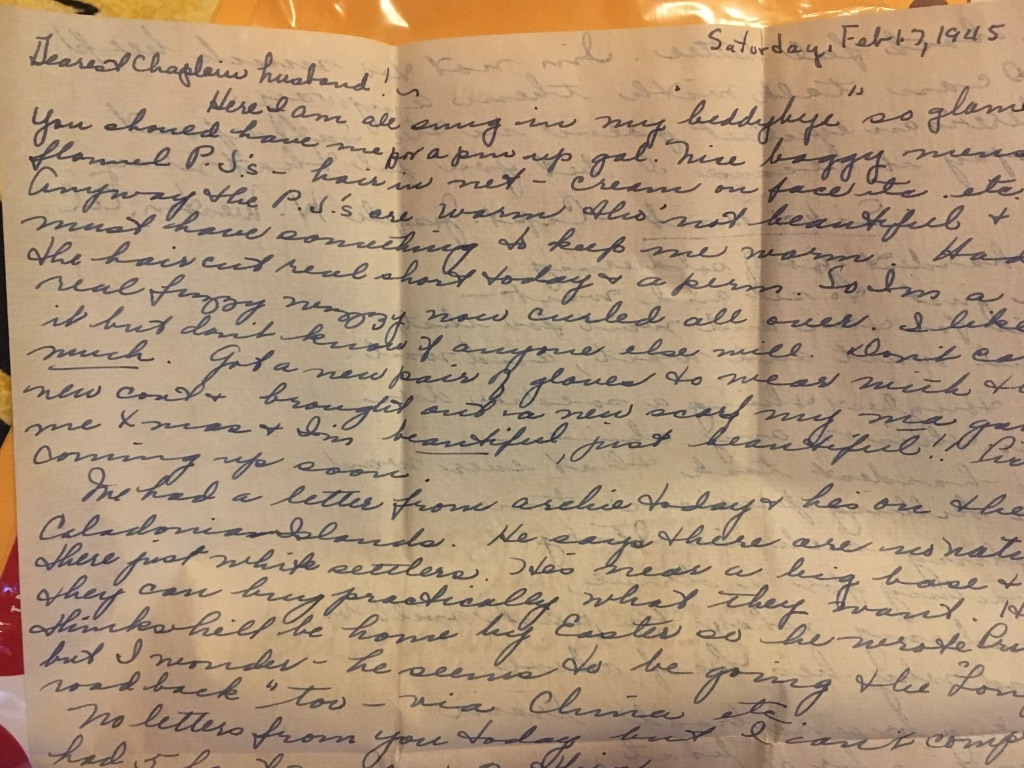 Saturday, Feb 17, 1945
Dearest Chaplain husband!
Here I am all snug in my "beddybye" so glam
You should have me for a pin up gal. Nice baggy mens
flannel P.J.'s - hair in net - cream on face etc. etc.
Anyway the P.J.'s are warm tho' not beautiful &
must have something to keep me warm. Had
the hair cut real short today & a perm. So I'm a
real fuzzy wuzzy now curled all over. I like
it but don't know if anyone else will. Don't ca
much. Got a new pair of gloves to wear with
new coat & brought out a new scarf my ma ga
me Xmas & I'm beautiful, just beautiful!!
coming up soon.
We had a letter from Archie today & he's on the
Caladonian Islands. He says there are no nati
there just white settlers. He's near a big base &
they can buy practically what they want. H
thinks he'll be home by Easter so he wrote
but I wonder - he seems to be going the "Lon
road back" too - via China etc.
No letters from you today but I can't comp
had 5